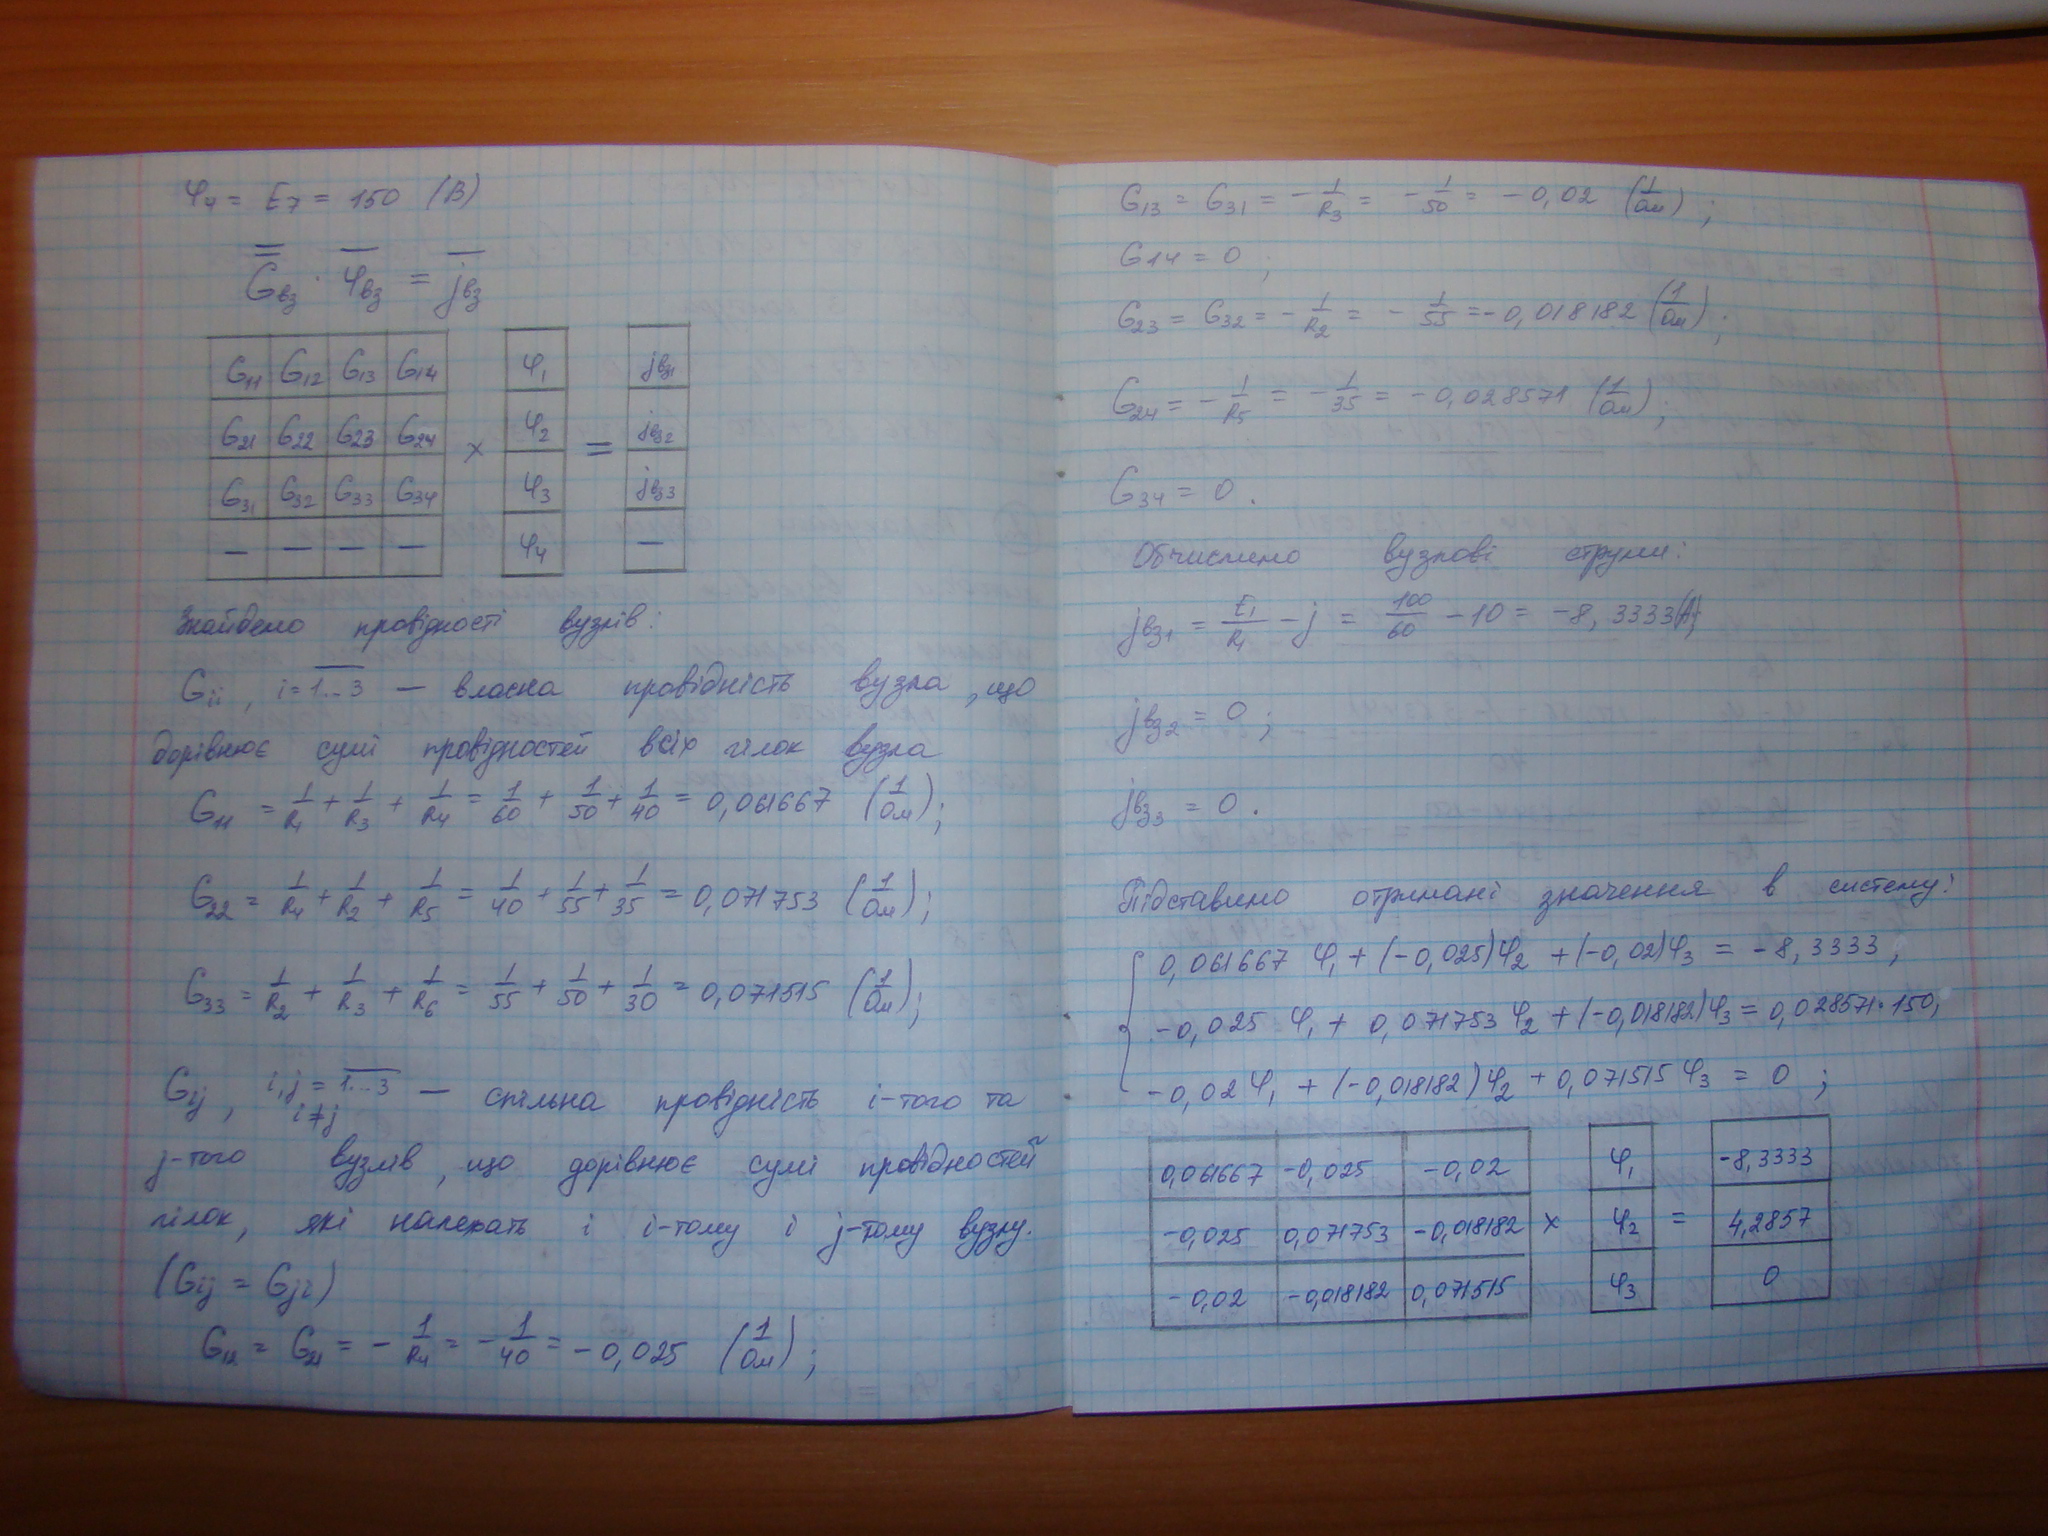 φ4 = E7 = 150 (В)
G̿вз · φ̅вз = j̅вз
G11 G12 G13 G14 φ1 jвз1
G21 G22 G23 G24 × φ2 = jвз2
G31 G32 G33 G34 φ3 jвз3
— — — — φ4 —
Знайдемо провідності вузлів:
Gii, i = 1...3 — власна провідність вузла, що
дорівнює сумі провідностей всіх гілок вузла
G11 = 1/R1 + 1/R3 + 1/R4 = 1/60 + 1/50 + 1/40 = 0,061667 (1/Ом);
G22 = 1/R4 + 1/R2 + 1/R5 = 1/40 + 1/55 + 1/35 = 0,071753 (1/Ом);
G33 = 1/R2 + 1/R3 + 1/R6 = 1/55 + 1/50 + 1/30 = 0,071515 (1/Ом);
Gij, i,j = 1...3 — спільна провідність i-того та
i≠j
j-того вузлів, що дорівнює сумі провідностей
гілок, які належать і i-тому і j-тому вузлу.
(Gij = Gji)
G12 = G21 = - 1/R4 = - 1/40 = -0,025 (1/Ом);
G13 = G31 = - 1/R3 = - 1/50 = -0,02 (1/Ом);
G14 = 0;
G23 = G32 = - 1/R2 = - 1/55 = -0,018182 (1/Ом);
G24 = - 1/R5 = - 1/35 = -0,028571 (1/Ом);
G34 = 0.
Обчислимо вузлові струми:
jвз1 = E1/R1 - j = 100/60 - 10 = -8,3333 (А);
jвз2 = 0;
jвз3 = 0.
Підставимо отримані значення в систему:
0,061667 φ1 + (-0,025)φ2 + (-0,02)φ3 = -8,3333;
-0,025 φ1 + 0,071753 φ2 + (-0,018182)φ3 = 0,028571·150;
-0,02 φ1 + (-0,018182)φ2 + 0,071515 φ3 = 0;
0,061667 -0,025 -0,02 φ1 -8,3333
-0,025 0,071753 -0,018182 × φ2 = 4,2857
-0,02 -0,018182 0,071515 φ3 0